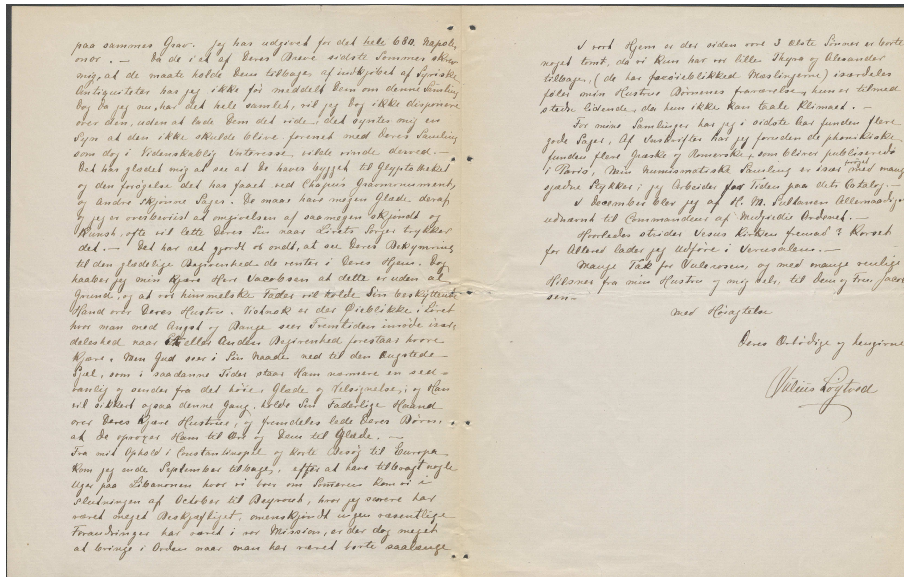 paa sammes Grav. Jeg har udgivet for det hele 680. Napole-
onor. — Da de i et af Deres Breve sidste Sommer skrev
mig, at de maate holde Dem tilbage af indkjøbet af Syriske
Antiquiteter har jeg ikke før meddelt Dem om denne Samling
Dog da jeg nu har det hele samlet, vil jeg dog ikke disponere
over den, uden at lade Dem det vide, det syntes mig en
Syn at den ikke skulde blive forenet med Deres Samling
som dog i Videnskablig Interesse vilde vinde derved —
Det har glædet mig at see at De haver bygget til Glyptotheket
og den forøgelse det har faaet ved Chapus Gravmonument,
og Andre skjønne Sager. De maae have megen Glæde deraf
og jeg er overbeviist at omgivelsen af saamegen skjøndt og
Kunst, ofte vil lette Deres Sin naar Livets Sorger trykker
det. — Det har æt gjordt os ondt, at see Deres Bekymring
til den glædelige Begivenhed de venter i Deres Hjem. Dog
haaber jeg min Kjære Herr Jacobsen at dette er uden al
Grund, og at vor himmelske Fader vil holde Sin beskyttende
Haand over Deres Hustru. Vistnok er der Øieblikke i Livet
hvor man med Angst og Bange seer Fremtiden imøde især
deleshed naar Et eller Anden Begivenhed forestaar hvore
Kjære. Men Gud seer i Sin Naade ned til den Angstede
Sjæl, som i saadanne Tider staar Ham nærmere en sed-
vanlig og sender fra det høie, Glæde og Velsignelse, og Han
vil sikkert ogsaa denne Gang, holde Sin Faderlige Haand
over Deres Kjære Hustrue, og fremdeles lede Deres Børn,
at de opvoxer Ham til Ære og Dem til Glæde. —
Fra mit Ophold i Constantinopel og korte Besøg til Europa
kom jeg ende September tilbage, efter at have tilbragt nogle
Uger paa Libanonen hvor vi boer om Sommeren kom vi i
Slutningen af October til Beyrouth, hvor jeg sænere har
været meget Beskjæftiget, omenskjöndt ingen væsentlige
Forandringer har været i vor Mission, er der dog meget
at bringe i Orden naar man har været borte saalænge
I vort Hjem er der siden vore 3 ælste Sønner er borte
noget tomt, da vi kun har vor lille Thyra og Alexander
tilbage, (de har foröieblikked Mæslingerne) isærdeles
føler min Hustrue Børnenes fraværelse, hun er tilmed
stedse lidende, da hun ikke kan taale Klimaet. —
For mine Samlinger har jeg i sidste har funden flere
gode Sager, Af Inskrifter har jeg foruden de phöniskiske
funden flere Græske og Romerske, som bliver publiserede
i Paris, Min Numismatiske Samling er især foröget med mange
sjældne Stykker, jeg Arbeider for Tiden paa dets Catalog. —
I December blev jeg af H. M. Sultanen Allernaadigst
udnævnt til Commandeur af Medjidie Ordenet. —
Hvorledes strider Jesus Kirken fremad? Korset
for Alteret lader jeg udføre i Jerusalem. —
Mange Tak for Julerosen, og med mange venlige
Hilsner fra min Hustru og mig selv, til Dem og Frue Jacob-
sen—
med Høiagtelse
Deres Ærbødige og hengivne
Julius Løytved